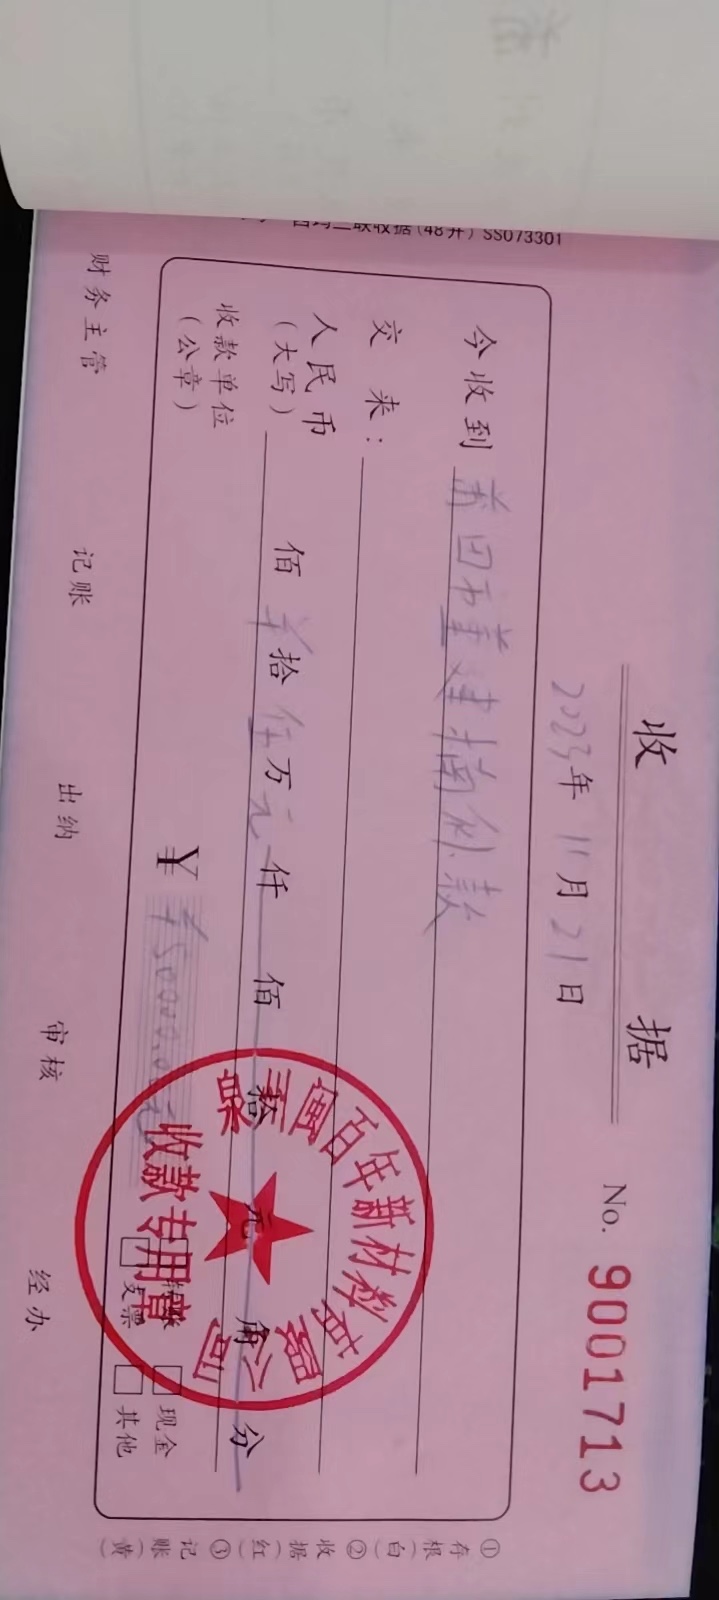 收 据
No. 9001713
2023年11月21日
今收到 莆田市
款
交 来：
人民币（大写） 佰 拾 伍万元 仟 佰 拾 元 角 分
收款单位（公章）
￥ ￥50000.00元
转账 现金
支票 其他
闽百年新材料有限公司
收款专用章
财务主管 记账 出纳 审核 经办
①存根（白）②收据（红）③记账（黄）
三联收据(48开) SS073301